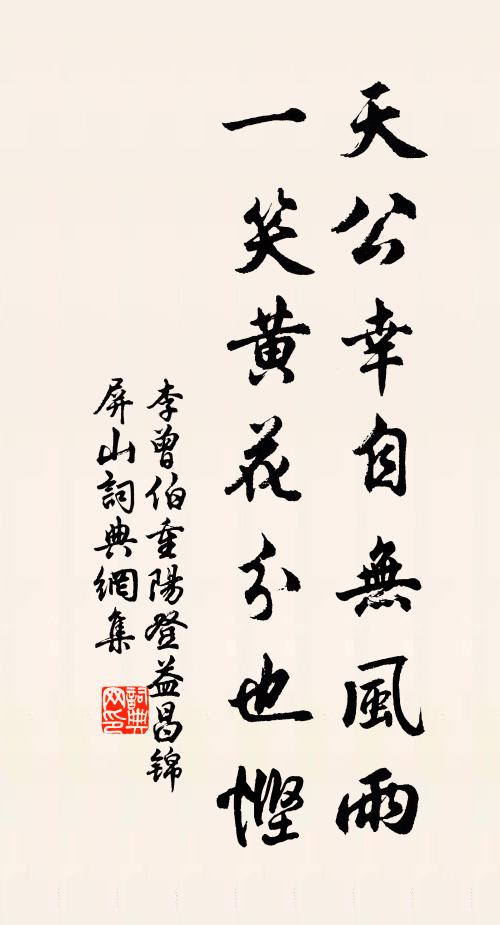 天公幸自無風雨
一笑黄花分也慳
李曾伯重陽登益昌錦
屏山詞典網集
詞典
网印